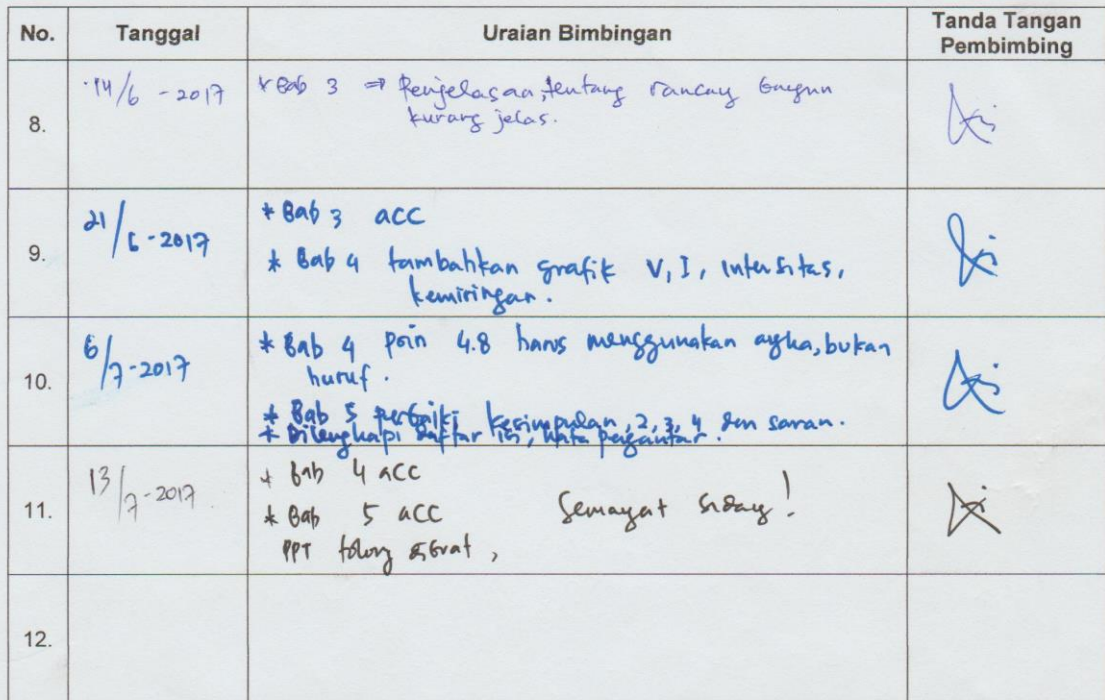 No. Tanggal Uraian Bimbingan Tanda Tangan Pembimbing
8. 14/6 - 2017 * Bab 3 ⇒ Penjelasan, tentang rancang bangun
kurang jelas.
9. 21/6 - 2017 * Bab 3 acc
* Bab 4 tambahkan grafik V, I, intensitas,
kemiringan.
10. 6/7-2017 * Bab 4 poin 4.8 harus menggunakan angka, bukan
huruf.
* Bab 5 perbaiki kesimpulan, 2, 3, 4 dan saran.
* Dilengkapi daftar isi, kata pengantar.
11. 13/7-2017 * Bab 4 acc
* Bab 5 acc Semangat sidang!
PPT tolong dibuat,
12.